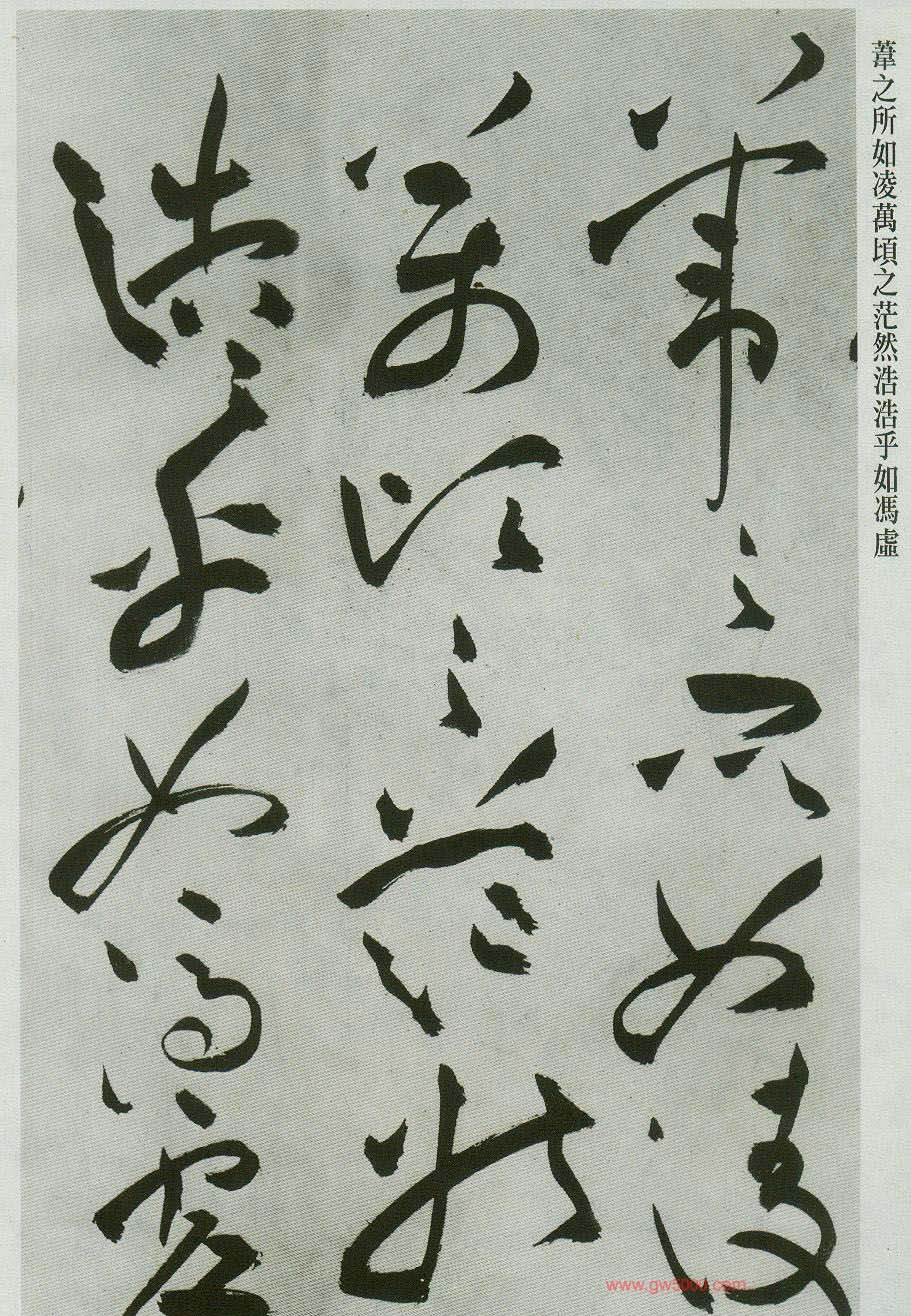 葦之所如凌萬頃之茫然浩浩乎如馮虛
葦之所如凌
萬頃之茫然
浩〻乎如馮虛
www.gw5000.com